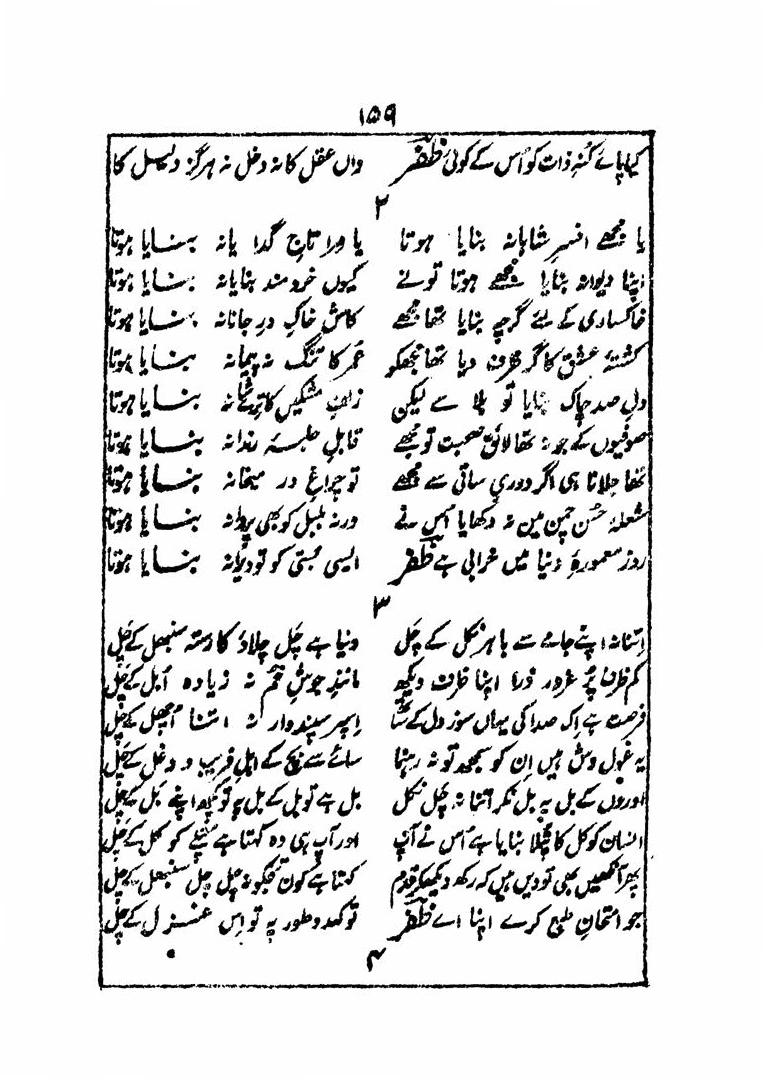 ۱۵۹
کیا پائے کنہِ ذات کو اُس کے کوئی ظفر واں عقل کا نہ دخل نہ ہرگز دلیل کا
۲
یا مجھے افسرِ شاہانہ بنایا ہوتا یا مرا تاج گدایانہ بنایا ہوتا
اپنا دیوانہ بنایا مجھے ہوتا تونے کیوں خردمند بنایا نہ بنایا ہوتا
خاکساری کے لئے گرچہ بنایا تھا مجھے کاش خاکِ درِ جانانہ بنایا ہوتا
نشۂ عشق کا گر ظرف دیا تھا مجھکو عمر کا تنگ نہ پیمانہ بنایا ہوتا
دلِ صد چاک بنایا تو بلا سے لیکن زلفِ مشکیں کا ترے شانہ بنایا ہوتا
صوفیوں کے جو نہ تھا لائقِ صحبت تو مجھے قابلِ جلسۂ رندانہ بنایا ہوتا
تھا جلانا ہی اگر دوریِ ساقی سے مجھے تو چراغِ درِ میخانہ بنایا ہوتا
شعلۂ حسن چمن مین نہ دکھایا اُس نے ورنہ بلبل کو بھی پروانہ بنایا ہوتا
روز معمورۂ دنیا میں خرابی ہے ظفر ایسی بستی کو تو ویرانہ بنایا ہوتا
۳
اِتنا نہ اپنے جامے سے باہر نکل کے چل دنیا ہے چَل چلاؤ کا رستہ سنبھل کے چَل
کم ظرف پُر غرور ذرا اپنا ظرف دیکھ مانندِ جوشِ خُم نہ زیادہ اُبل کے چَل
فرصت ہے اِک صدا کی یہاں سوزِ دل کے ساتھ اِسپر سپندوار نہ اتنا اُچھل کے چَل
یہ غول وش ہیں اِن کو سمجھ تو نہ رہنما سائے سے بچ کے اہلِ فریب و دغل کے چَل
اوروں کے بل پہ بل نکر اتنا نہ چَل نکل بل ہے تو بل کے بل پہ تو کچھ اپنے بَل کے چَل
انسان کو کل کا پُتلا بنایا ہے اُس نے آپ اور آپ ہی وہ کہتا ہے پتلے کو کل کے چَل
پھر آنکھیں بھی تو دیں ہیں کہ رکھ دیکھکر قدم کہتا ہے کون تجکو نہ چل چَل سنبھل کے چَل
جو امتحانِ طبع کرے اپنا اے ظفر تو کہدو طور پہ تو اِس غزل کے چَل
۴